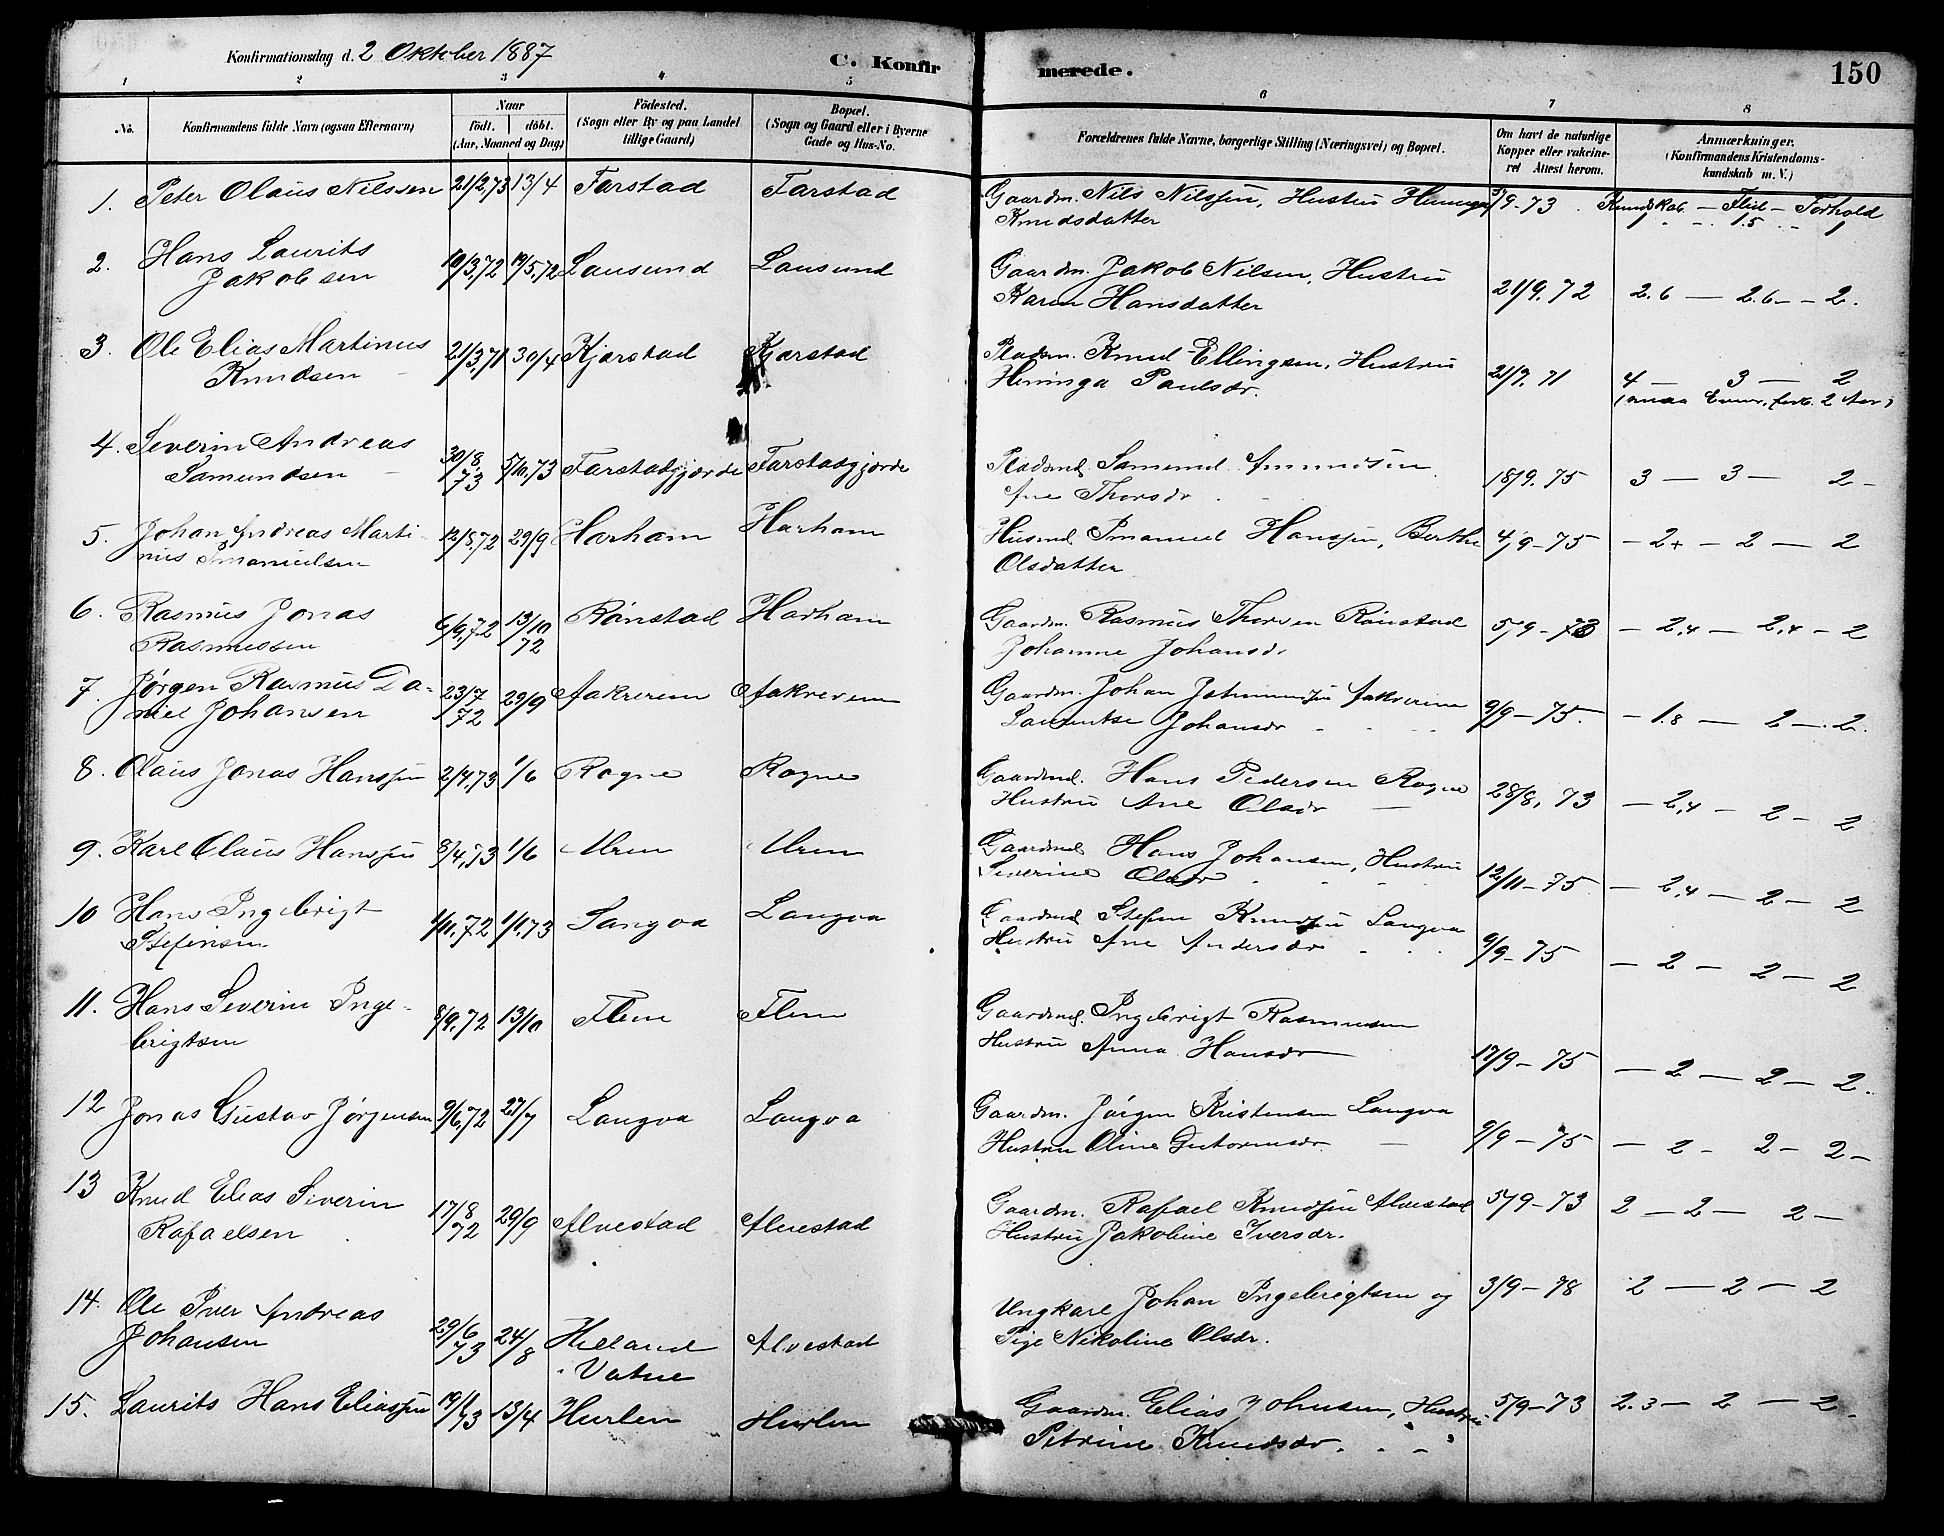 Konfirmationsdag d. 2 Oktober 1887
C. Konfir
merede.
150
1 2 3 4 5 6 7 8
No. Konfirmandens fulde Navn (ogsaa Efternavn) Naar födt. döbt. (Aar, Maaned og Dag) Födested. (Sogn eller By og paa Landet tillige Gaard) Bopæl. (Sogn og Gaard eller i Byerne Gade og Hus-No. Forældrenes fulde Navne, borgerlige Stilling (Næringsvei) og Bopæl. Om havt de naturlige Kopper eller vakcineret Attest herom. Anmærkninger. (Konfirmandens Kristendomskundskab m. V.)
1. Peter Olaus Nilssen 21/2,73 13/4 Farstad Farstad Gaardm. Nils Nilssen, Hustru /9-73 Kundskab — Flid — Forhold
Knudsdatter 1 1.5 1
2. Hans Laurits 10/3,72 19/5,72 Lausund Lausund Gaardm. Jakob Nilsen, Hustru
Jakobsen Karen Hansdatter 21/9.72 2.6 — 2.6 — 2.
3. Ole Elias Martinus 21/3,71 30/4 Kjærstad Kjærstad Pladsm. Knud Ellingsen, Hustru
Knudsen Heninga Paulsdr. 21/9.71 4 — 3 — 2
2 Aar)
4. Severin Andreas 30/8.73 5/10.73 Farstadgjærde Farstadgjorde Pladsmd. Samund Amundsen
Samundsen Ane Thorsdr. 18/9.75 3 — 3 — 2 -
5. Johan Andreas Marti- 12/8,72 29/9 Harham Harham Husmd. Imanuel Hanssen, Berthe 4/9-75 - 2+ - 2 — 2
nus Imanuelsen Olsdatter
6. Rasmus Jonas 6/9,72 13/10 72 Rønstad Harham Gaardm. Rasmus Thorsen Rønstad 5/9-73 - 2,4 - 2,4 - 2
Rasmussen Johanne Johansdr
7. Jørgen Rasmus Da- 23/7 72 29/9 Aakrerem Aakrerem Gaardm. Johan Aakrerem
niel Johansen Laurentse Johansdr 9/9-75. - 1.8 — 2 — 2.
8. Olaus Jonas Hanssen 2/4,73 1/6 Rogne Rogne Gaardmd. Hans Pedersen Rogne
Hustru Ane Olsdr 28/8, 73 — 2,4 — 2 — 2
9. Karl Olaus Hanssen 3/4,73 1/6 Urem Urem Gaardmd Hans Johansen, Hustru
Severine Olsdr 12/11-75. — 2,4 — 2 — 2
10 Hans Ingebrigt 1/11,72 1/1,73 Langva Langva Gaardmd Stefen Knudsen Langva
Stefensen Hustru Ane Andersdr 9/9-75 — 2 — 2 — 2
11. Hans Severin Inge- 8/9,72 13/10 Flem Flem Gaardmd. Ingebrigt Rasmussen
brigtsen Hustru Anna Hansdr 17/9-75 — 2 — 2 — 2.
12 Jonas Gustav Jørgensen 9/6,72 27/7 Langva Langva Gaardm. Jørgen Kristensen Langva
Hustru Oline Gutormsdr. 9/9-75 — 2 - 2 — 2 -
13 Knud Elias Severin 17/8 72 29/9 Alvestad Alvestad Gaardm. Rafael Knudsen Alvestad 5/9-73 2 — 2 — 2 —
Rafaelsen Hustru Jakobine Iversdr.
14. Ole Iver Andreas 29/6 73 24/8 Helland Alvestad Ungkarl Johan Ingebrigtsen og 3/9-78 2 — 2 — 2
Johansen Vatne Pige Nikoline Olsdr.
15. Laurits Hans Eliassen 19/1 73 13/4 Hurlen Hurlen Gaardm. Elias Johnsen, Hustru 5/9-73 2.3 — 2 — 2
Petrine Knudsdr.